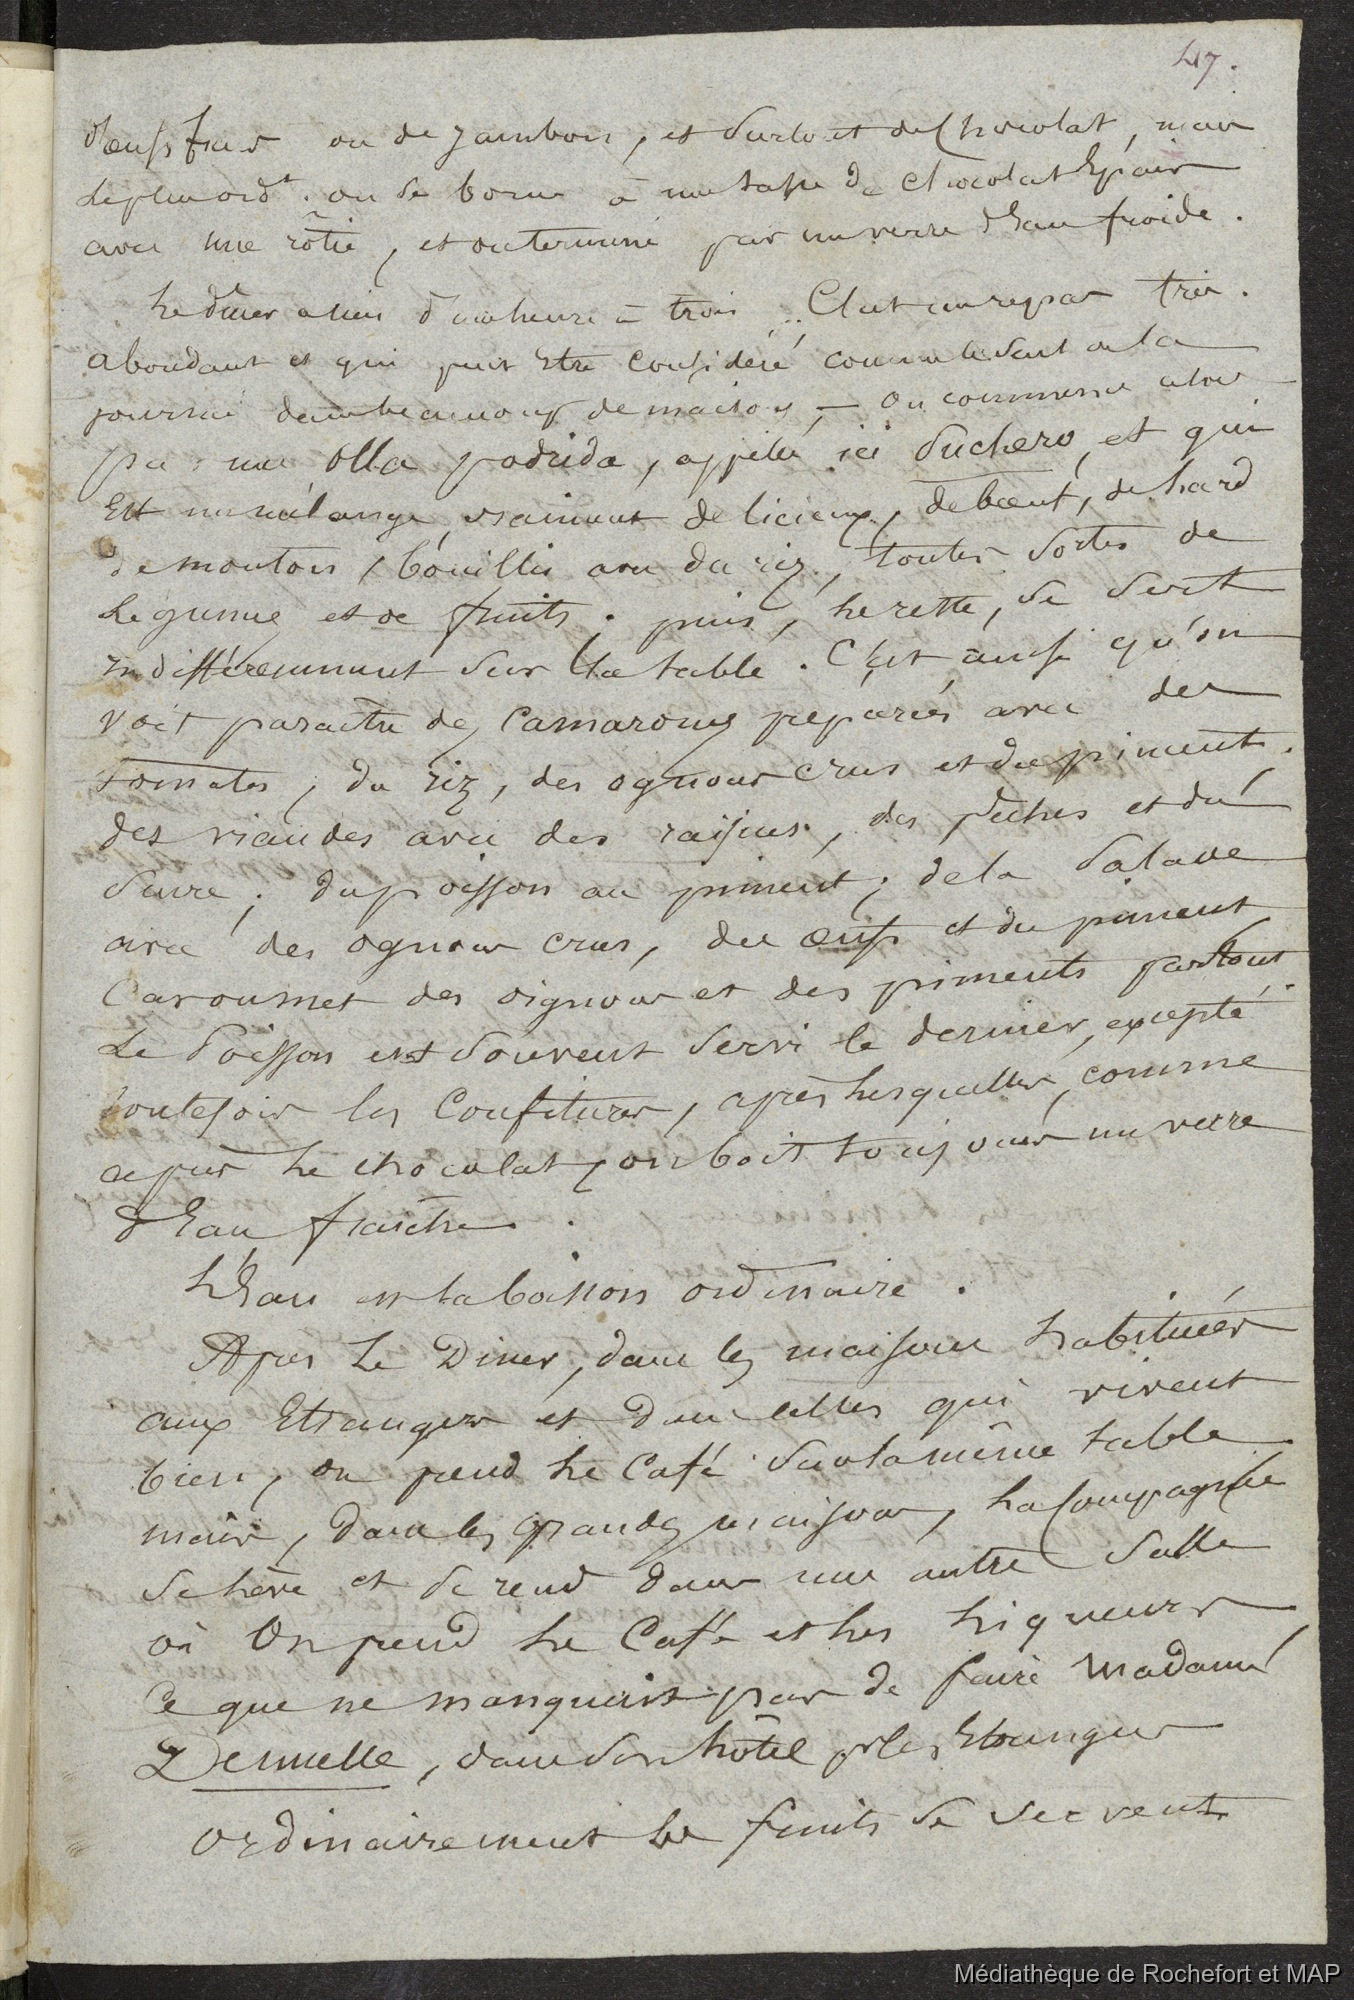 47.
d'œufs frais ou de jambon, et surtout de chocolat, mais
le plus ord.t on se borne à une tasse de chocolat Epais
avec une rôtie, et on termine par un verre d'Eau froide.
Le diner a lieu d'une heure à trois. C'est un repas très
abondant et qui peut Etre considéré comme le seul de la
journée dans beaucoup de maisons, — on commence alors
par une Olla podrida, appelée ici Puchero, et qui
Est un mélange vraiment delicieux, de bœuf, de Lard
de mouton, bouillis avec du riz, toutes sortes de
Legumes et de fruits. puis, Le reste, se sert
Indifféremment sur la table. C'est ainsi qu'on
voit paraitre des Camarones préparés avec des
tomates, du riz, des ognons crus et du piment.
des viandes avec des raisins, des pêches et du
sucre; du poisson au piment; de la salade
avec des ognons crus, des œufs et du piment
Car on met des oignons et des piments partout.
Le Poisson est souvent servi le dernier, excepté
toutefois les Confitures, après Lesquelles, comme
après Le chocolat, on boit toujours un verre
d'Eau fraiche.
L'Eau est la boisson ordinaire.
Après Le Diner, dans les maisons habituées
aux Etrangers et dans celles qui vivent
bien, on prend Le Café sur la même table
mais, dans les grandes maisons, La Compagnie
se Lève et se rend dans une autre Salle
où On prend Le Café et Les Liqueurs
Ce que ne manquait pas de faire Madame
Dennelle, dans son hôtel pr les Etrangers
Ordinairement les fruits se servent